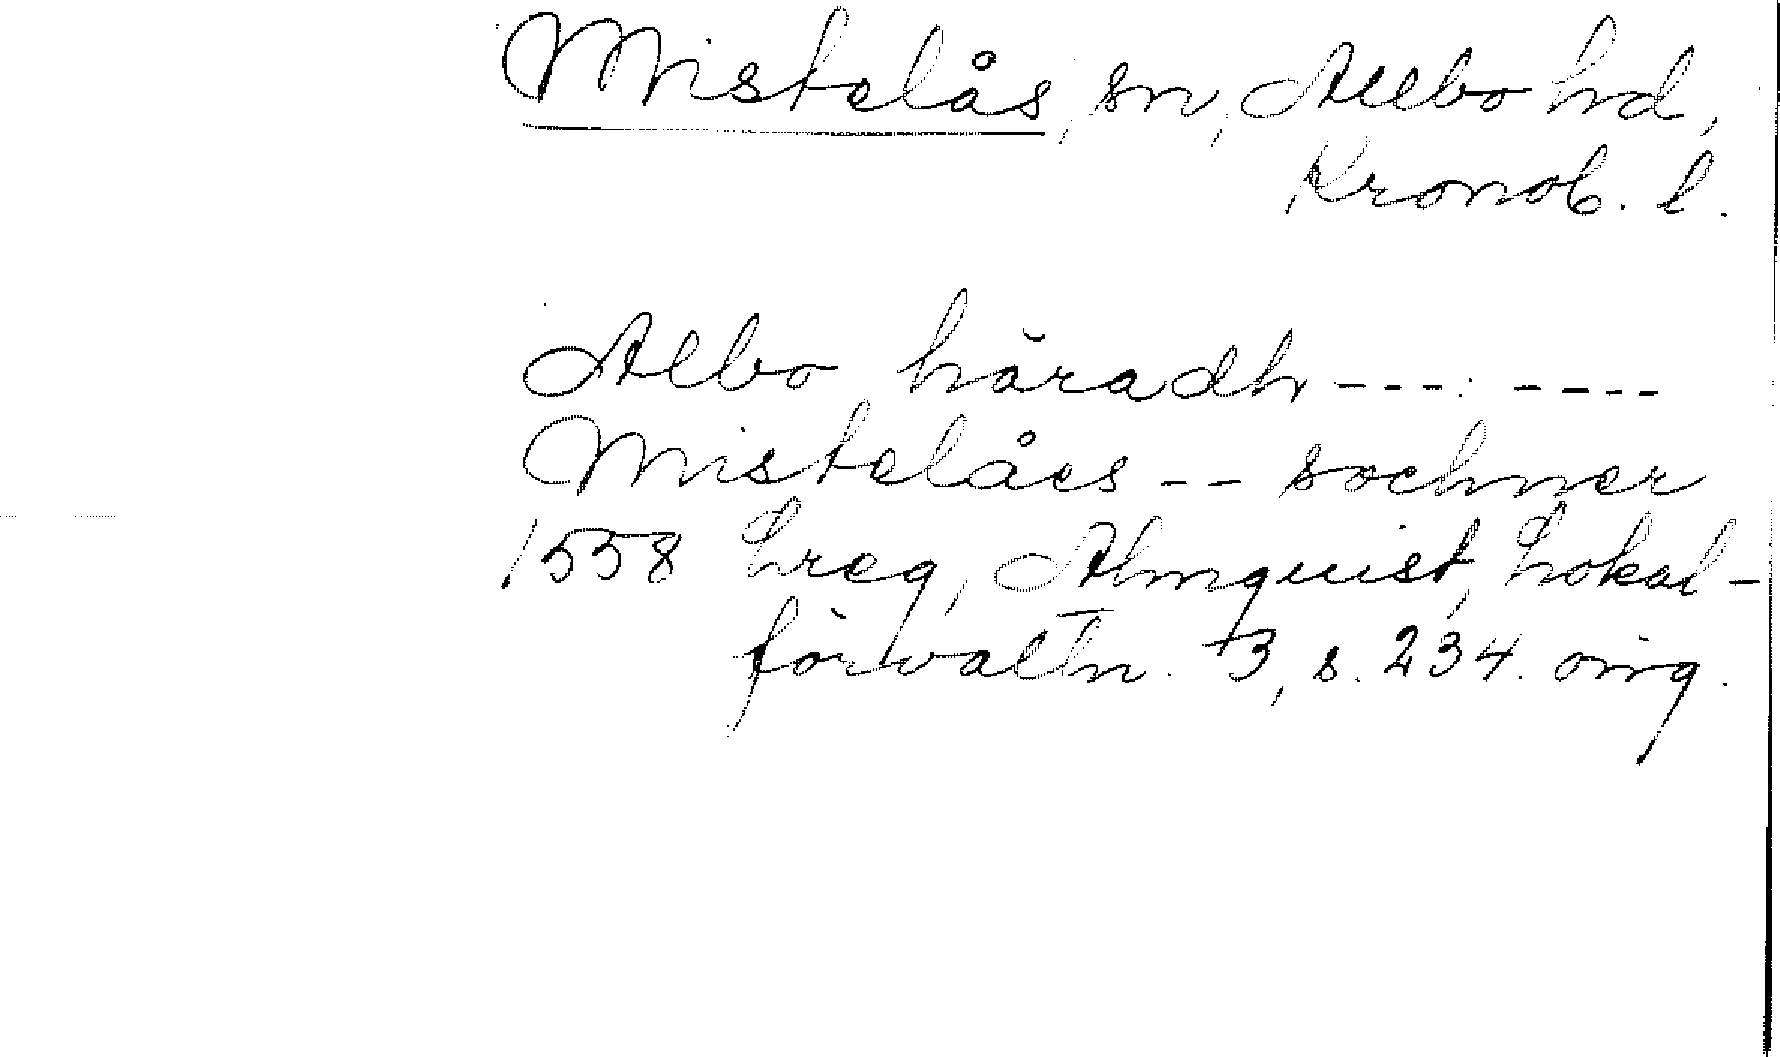 Mistelås, sn, Allbo hd,
Kronob. l.
Albo häradh ---- ----
Mistelåes -- sochner
1558 Lreg, Almquist, Lokal-
förvaltn. 3, s. 234. omg.